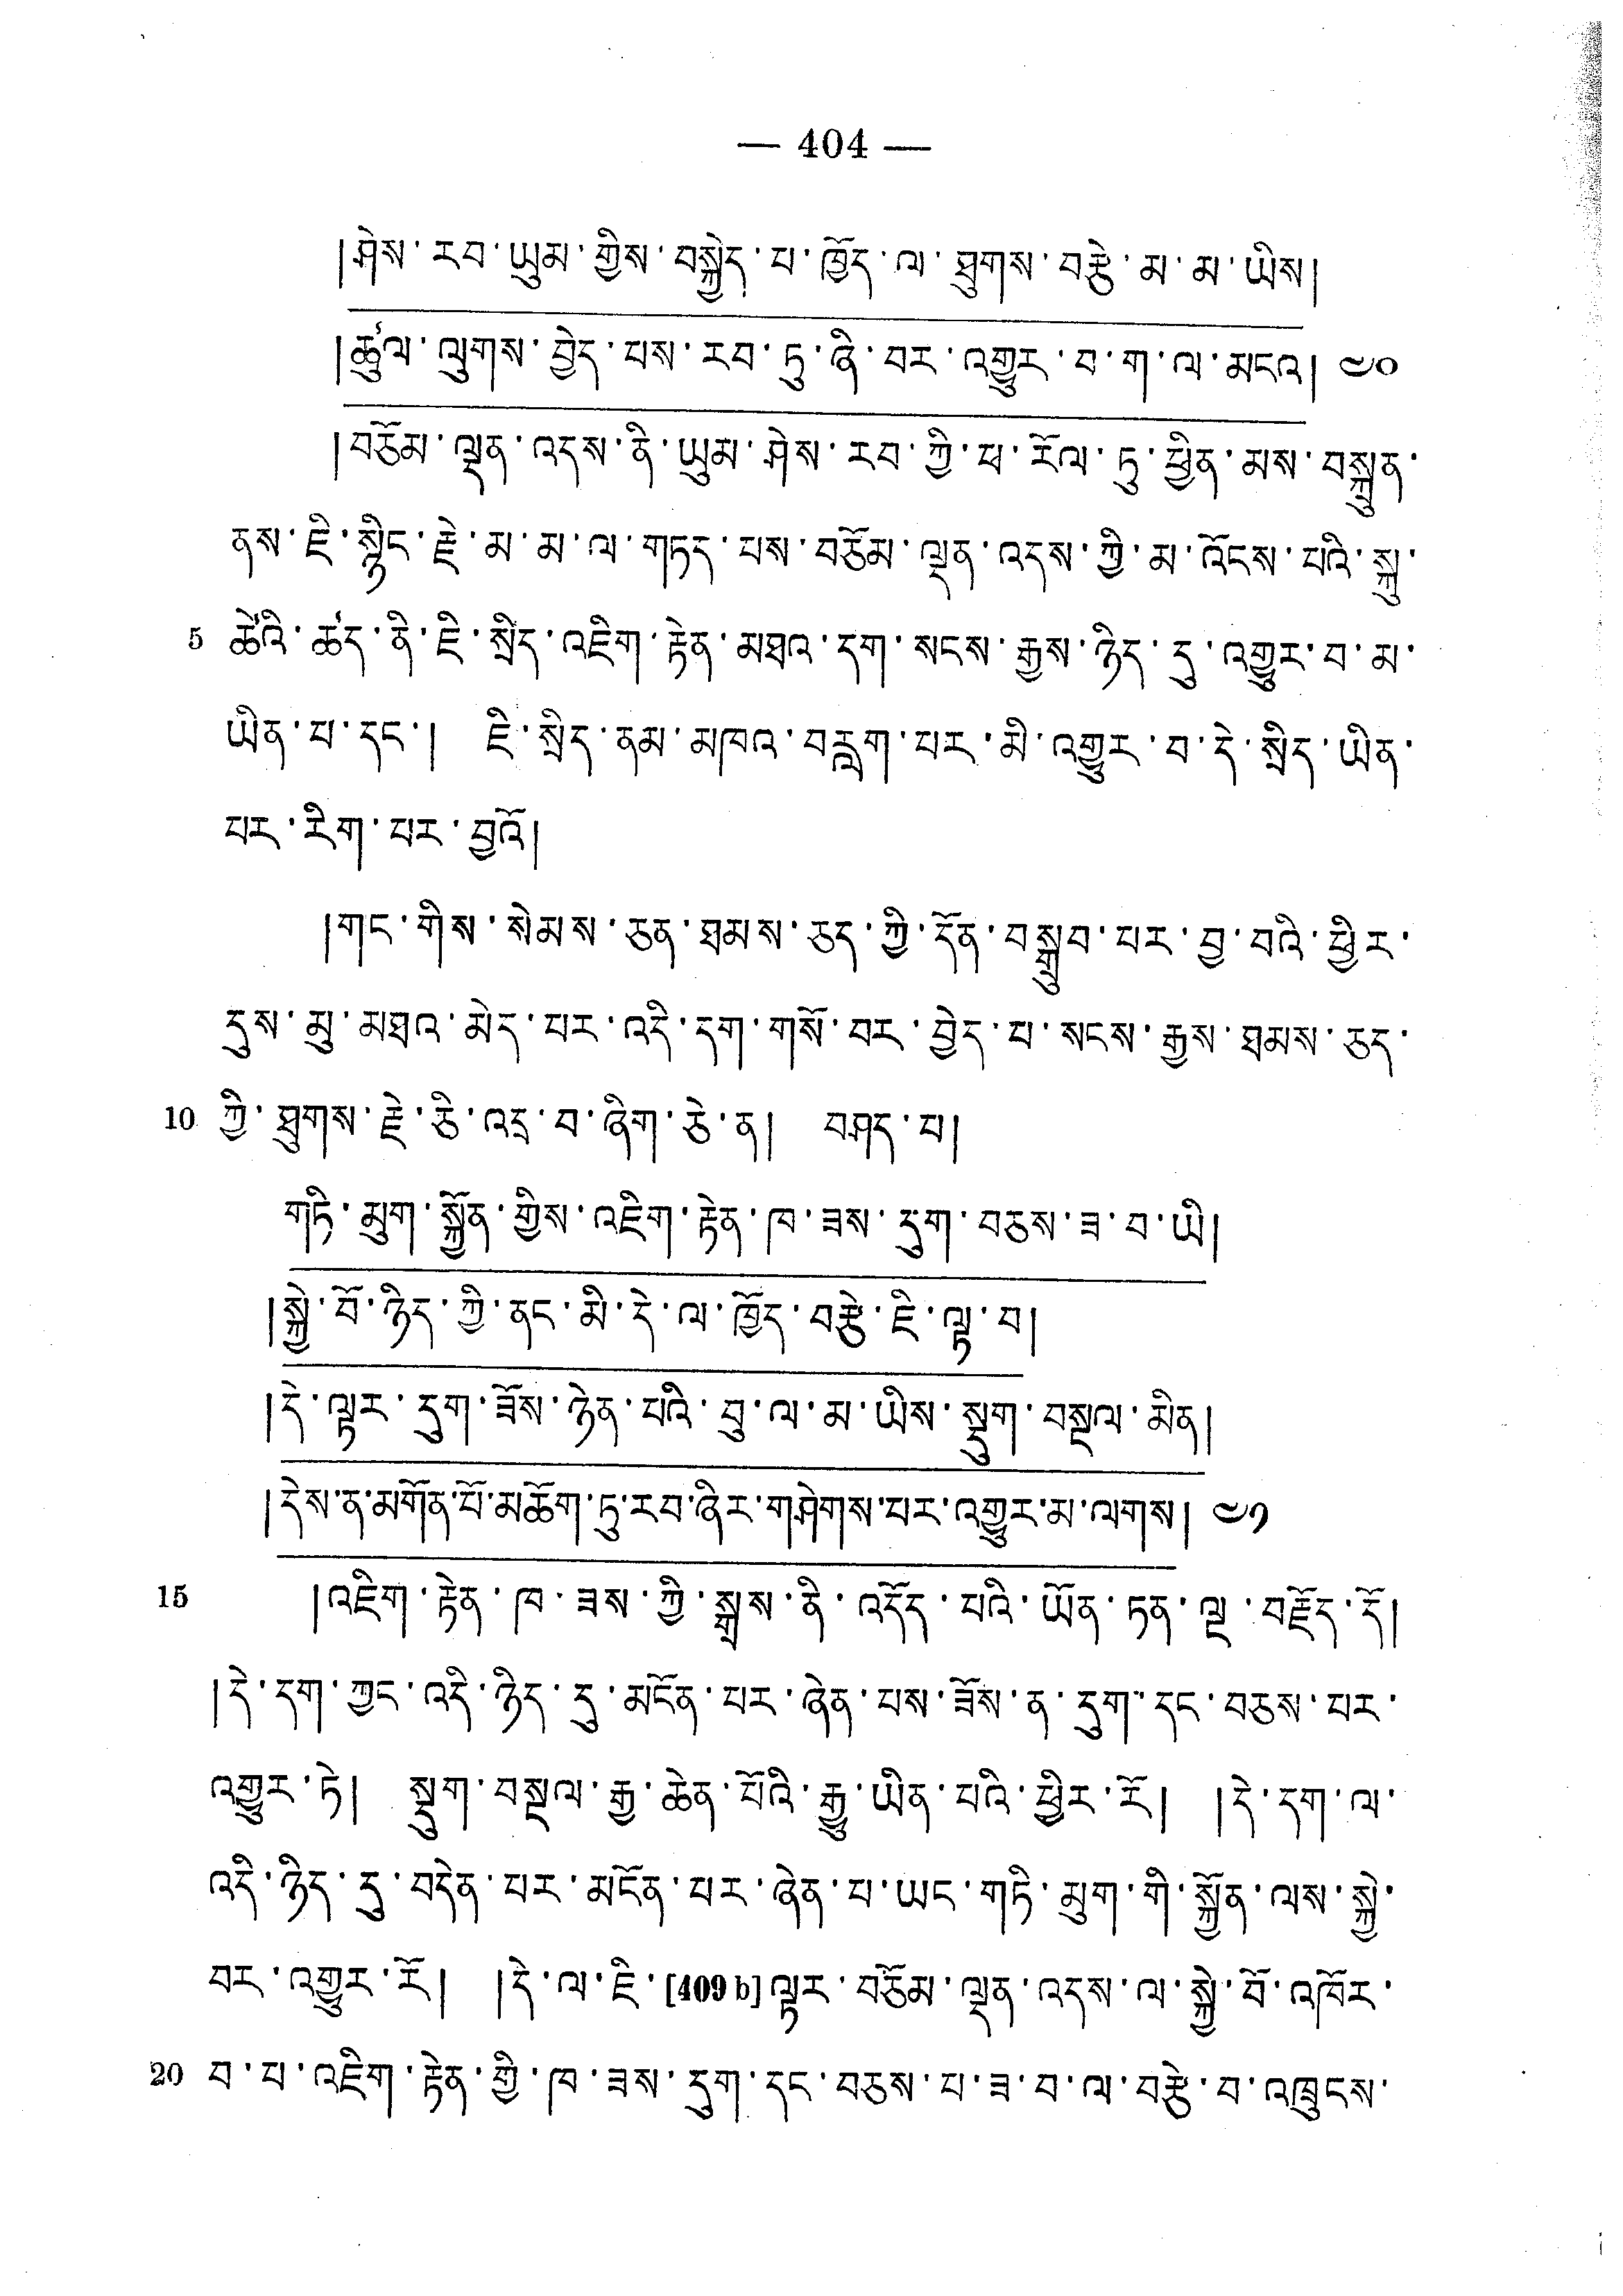 — 404 —
།ཤེས་རབ་ཡུམ་གྱིས་བསྐྱེད་པ་ཁྱོད་ལ་ཐུགས་བརྩེ་མ་མ་ཡིས།
།ཚུལ་ལུགས་བྱེད་པས་རབ་ཏུ་ཉེ་བར་འགྱུར་བ་ག་ལ་མངའ། ༤༠
།བཅོམ་ལྡན་འདས་ནི་ཡུམ་ཤེས་རབ་ཀྱི་ཕ་རོལ་ཏུ་ཕྱིན་མས་བསྐྲུན་
ནས་ཇི་སྙིང་རྗེ་མ་མ་ལ་གཏད་པས་བཅོམ་ལྡན་འདས་ཀྱི་མ་འོངས་པའི་སྐུ་
5 ཚེའི་ཚད་ནི་ཇི་སྲིད་འཇིག་རྟེན་མཐའ་དག་སངས་རྒྱས་ཉིད་དུ་འགྱུར་བ་མ་
ཡིན་པ་དང་། ཇི་སྲིད་ནམ་མཁའ་བརླག་པར་མི་འགྱུར་བ་དེ་སྲིད་ཡིན་
པར་རིག་པར་བྱའོ།
།གང་གིས་སེམས་ཅན་ཐམས་ཅད་ཀྱི་དོན་བསྒྲུབ་པར་བྱ་བའི་ཕྱིར་
དུས་མུ་མཐའ་མེད་པར་འདི་དག་གསོ་བར་བྱེད་པ་སངས་རྒྱས་ཐམས་ཅད་
10 ཀྱི་ཐུགས་རྗེ་ཅི་འདྲ་བ་ཞིག་ཅེ་ན། བཤད་པ།
གཏི་མུག་སྐྱོན་གྱིས་འཇིག་རྟེན་ཁ་ཟས་དུག་བཅས་ཟ་བ་ཡི།
།སྐྱེ་བོ་ཉིད་ཀྱི་ནང་མི་དེ་ལ་ཁྱོད་བརྩེ་ཇི་ལྟ་བ།
།དེ་ལྟར་དུག་ཟོས་ཉེན་པའི་བུ་ལ་མ་ཡིས་སྡུག་བསྔལ་མིན།
།དེས་ན་མགོན་པོ་མཆོག་ཏུ་རབ་ཞིར་གཤེགས་པར་འགྱུར་མ་ལགས། ༤༡
15 །འཇིག་རྟེན་ཁ་ཟས་ཀྱི་སྒྲས་ནི་འདོད་པའི་ཡོན་ཏན་ལྔ་བརྗོད་དོ།
།དེ་དག་ཀྱང་འདི་ཉིད་དུ་མངོན་པར་ཞེན་པས་ཟོས་ན་དུག་དང་བཅས་པར་
འགྱུར་ཏེ། སྡུག་བསྔལ་རྒྱ་ཆེན་པོའི་རྒྱུ་ཡིན་པའི་ཕྱིར་རོ། །དེ་དག་ལ་
འདི་ཉིད་དུ་བདེན་པར་མངོན་པར་ཞེན་པ་ཡང་གཏི་མུག་གི་སྐྱོན་ལས་སྐྱེ་
བར་འགྱུར་རོ། །དེ་ལ་ཇི་[409 b]ལྟར་བཅོམ་ལྡན་འདས་ལ་སྐྱེ་བོ་འཁོར་
20 བ་པ་འཇིག་རྟེན་གྱི་ཁ་ཟས་དུག་དང་བཅས་པ་ཟ་བ་ལ་བརྩེ་བ་འཁྲུངས་